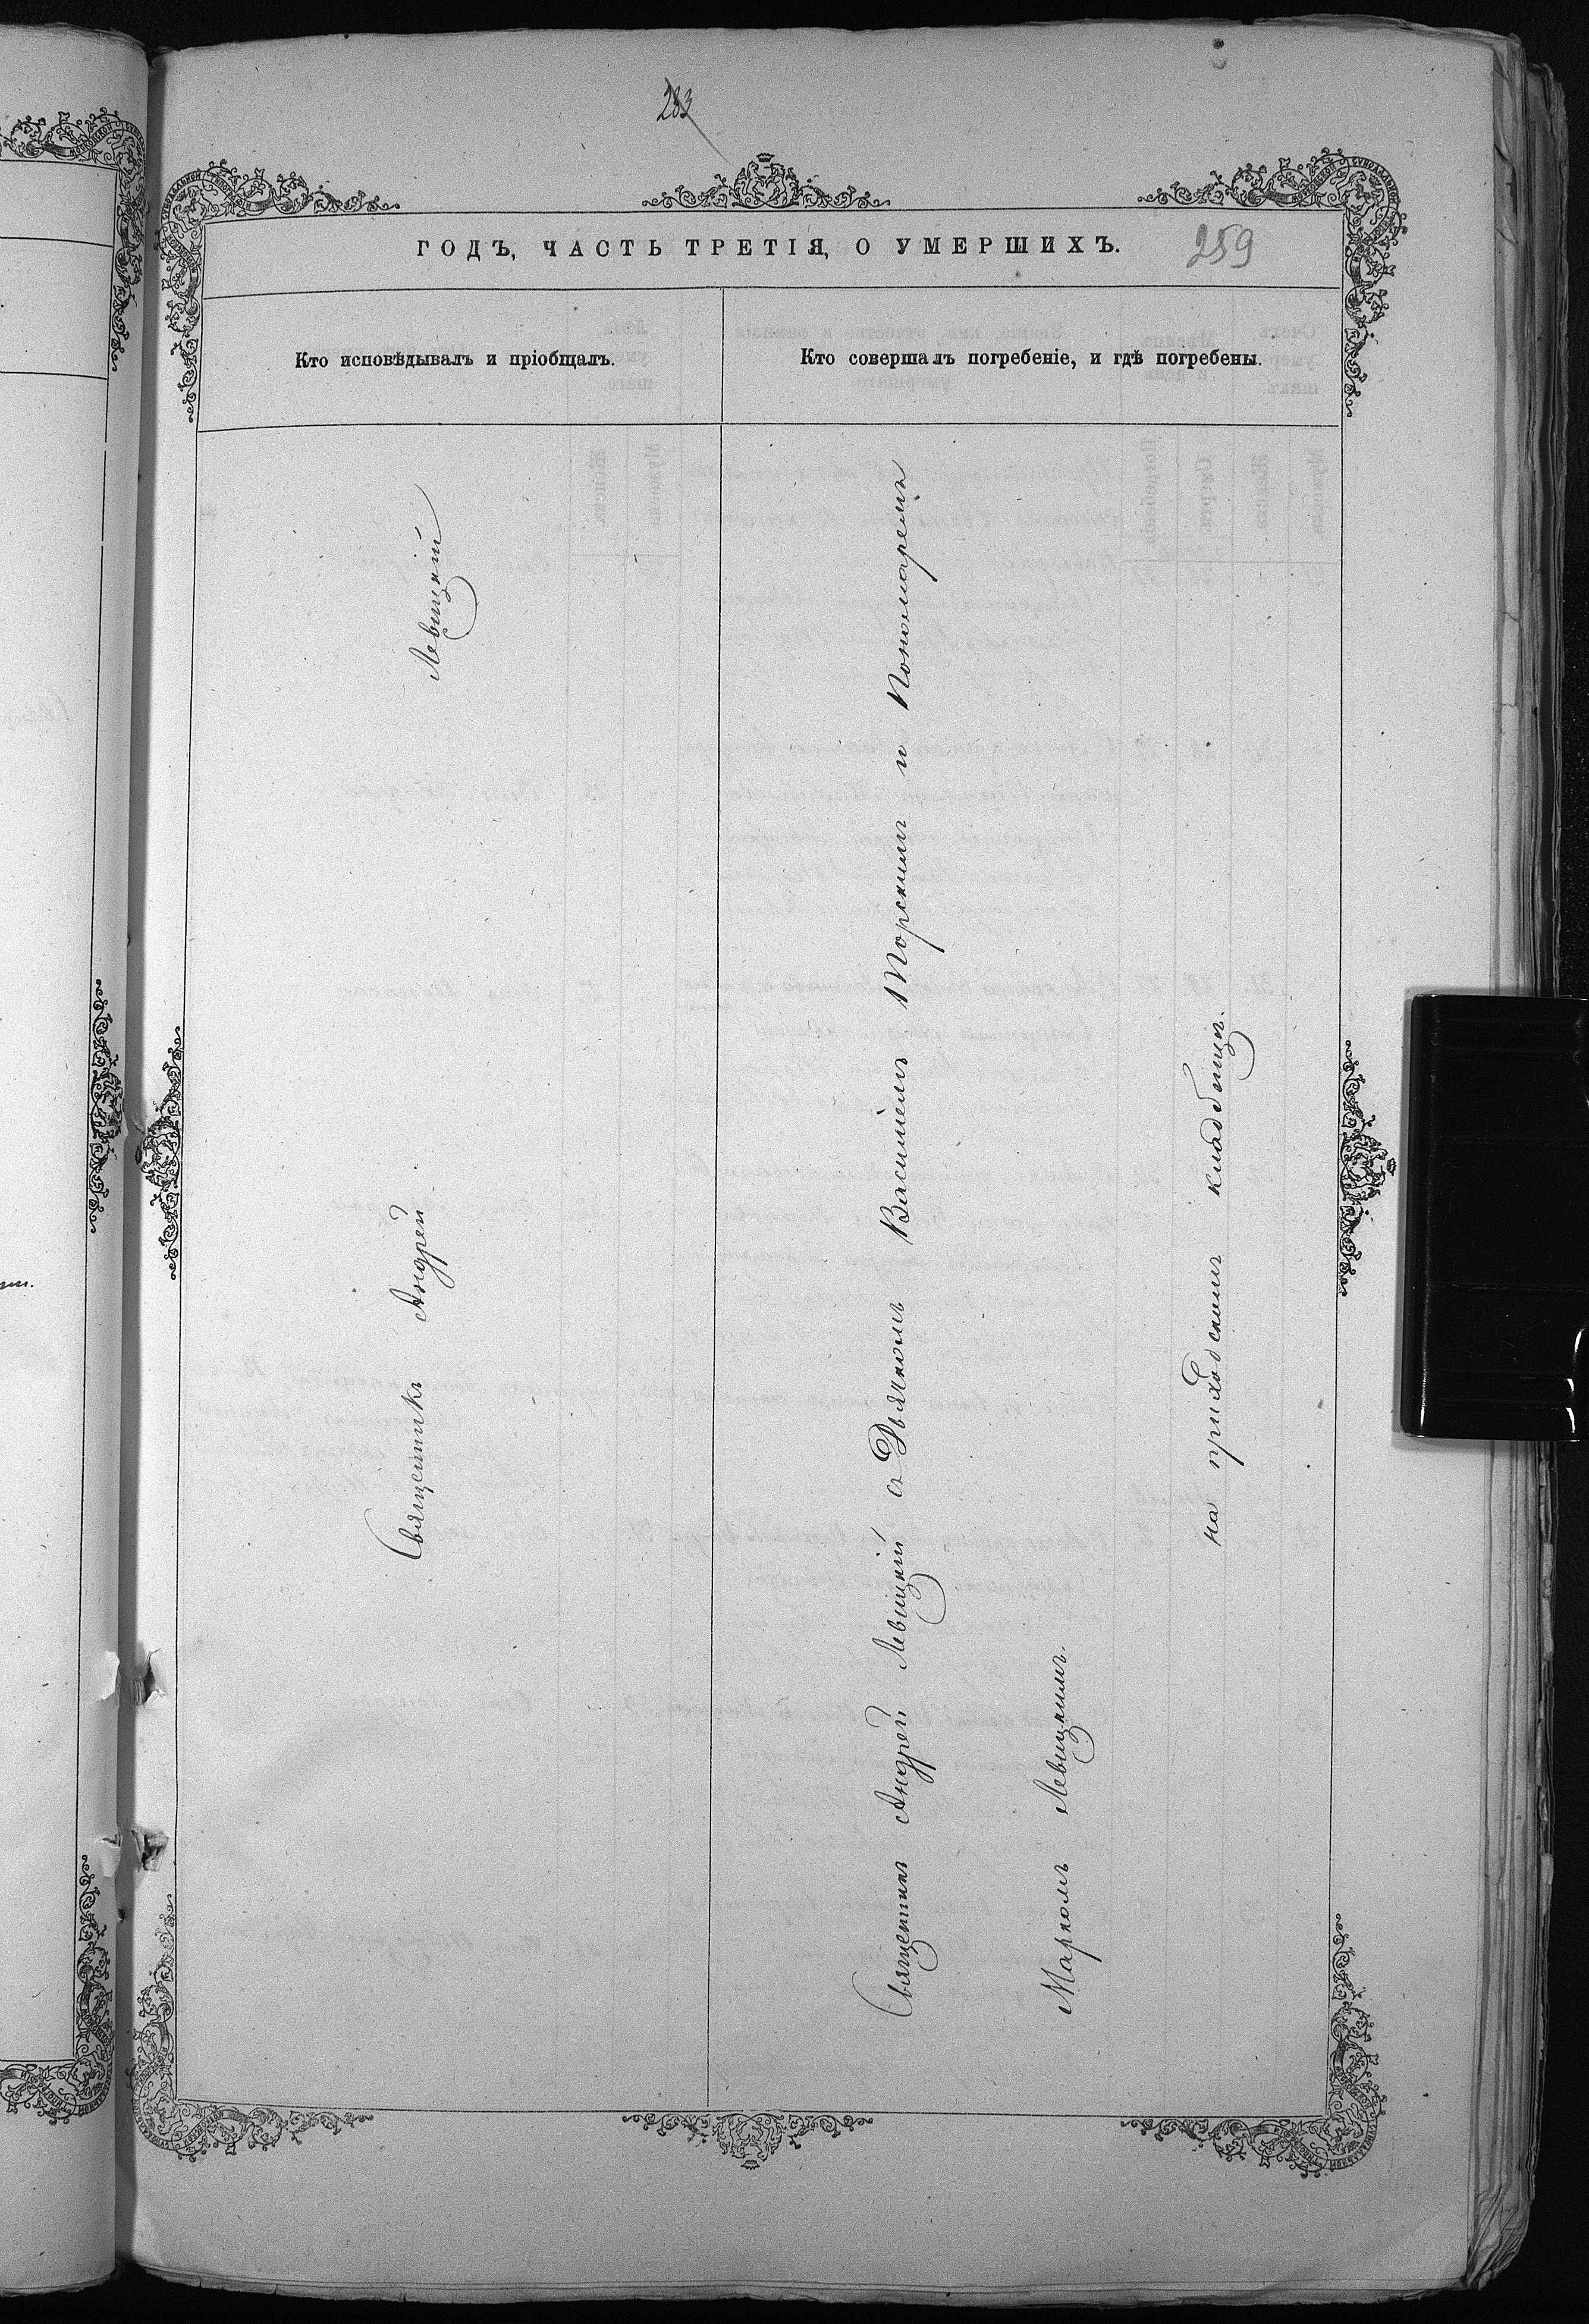 283
ГОДЪ, ЧАСТЬ ТРЕТІЯ, О УМЕРШИХЪ.
259
Кто исповѣдывалъ и пріобщалъ.
Кто совершалъ погребеніе, и гдѣ погребены.
Священникъ Андрей Левицкій
Священникъ Андрей Левицкій съ Дьячкомъ Василіемъ Торскимъ и Пономаремъ
Маркомъ Левицкимъ.
на приходскомъ кладбищѣ.